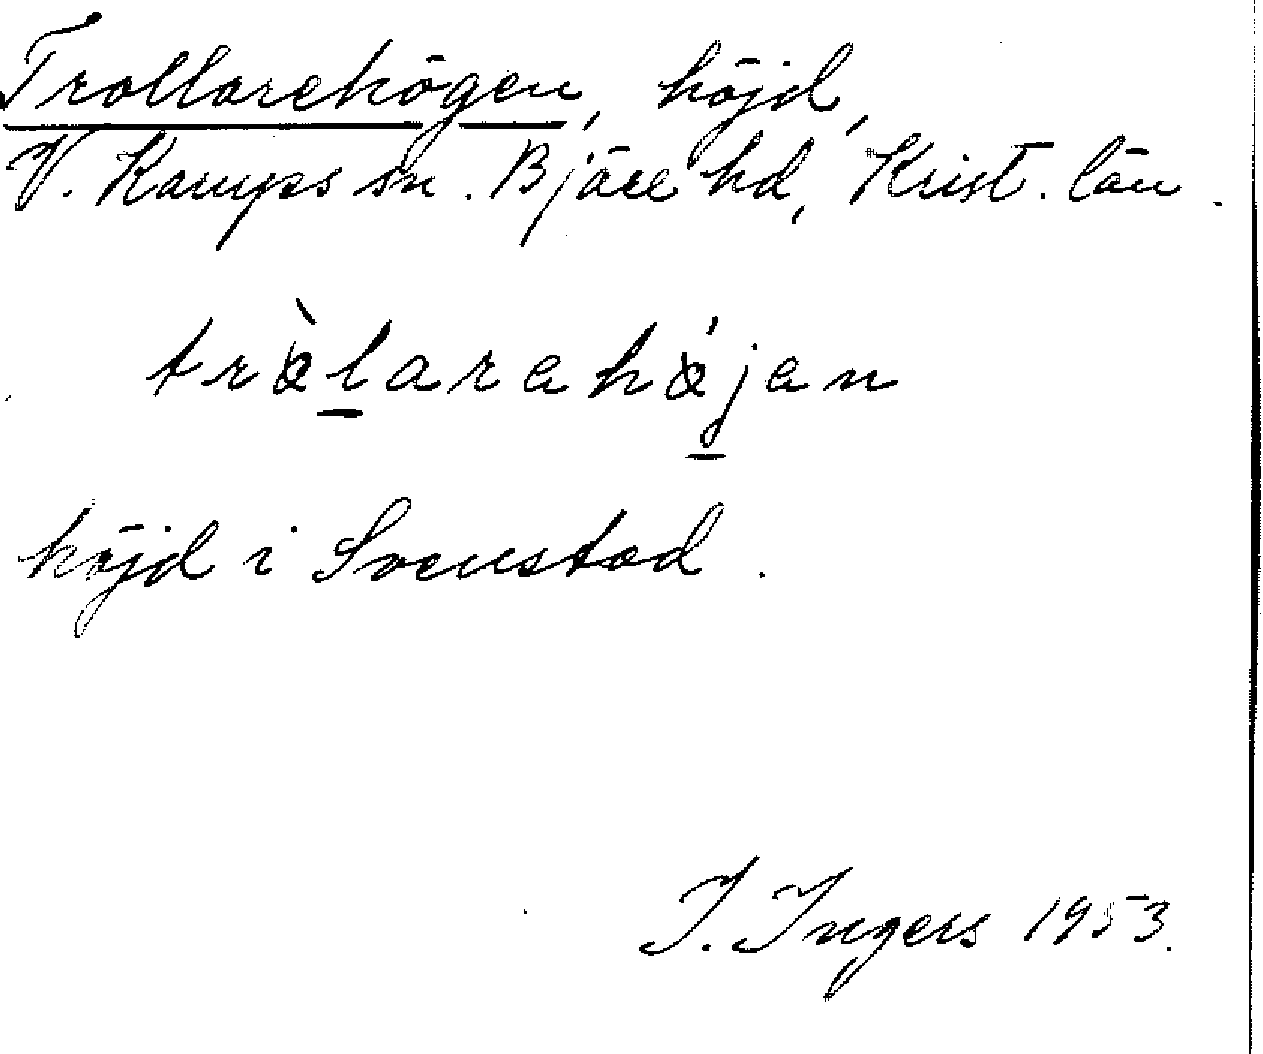 Trollarehögen, höjd,
V. Karups sn. Bjäre hd, Krist. län.
tròlarahájan
höjd i Svenstad.
I. Ingers 1953.